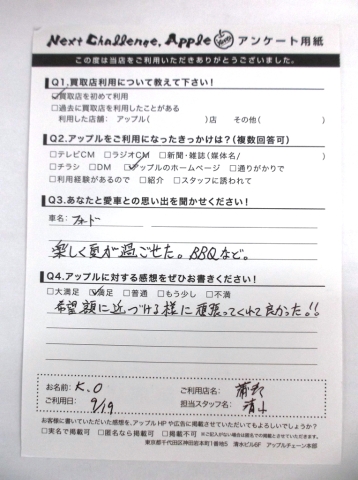 Next Challenge, Apple アンケート用紙
この度は当店をご利用いただきありがとうございました。
Q1.買取店利用について教えて下さい!
☑買取店を初めて利用
□過去に買取店を利用したことがある
利用した店舗: アップル( )店 その他( )
Q2.アップルをご利用になったきっかけは?(複数回答可)
□テレビCM □ラジオCM □新聞・雑誌(媒体名/ )
□チラシ □DM ☑アップルのホームページ □通りがかりで
□利用経験があるので □紹介 □スタッフに誘われて
Q3.あなたと愛車との思い出を聞かせください!
車名: フォード
楽しく夏が過ごせた。BBQなど。
Q4.アップルに対する感想をぜひお書きください!
□大満足 ☑満足 □普通 □もう少し □不満
希望額に近づける様に頑張ってくれて良かった!!
お名前: K.O
ご利用店名:
ご利用日: 9/19
担当スタッフ名: 清水
お客様に書いていただいた感想を、アップルHPや広告に掲載させていただいてもよろしいでしょうか?
□実名で掲載可 □匿名なら掲載可 □掲載不可 ※ご記入がない場合は匿名での掲載とさせていただきます。
東京都千代田区神田岩本町1番地5 清水ビル6F アップルチェーン本部